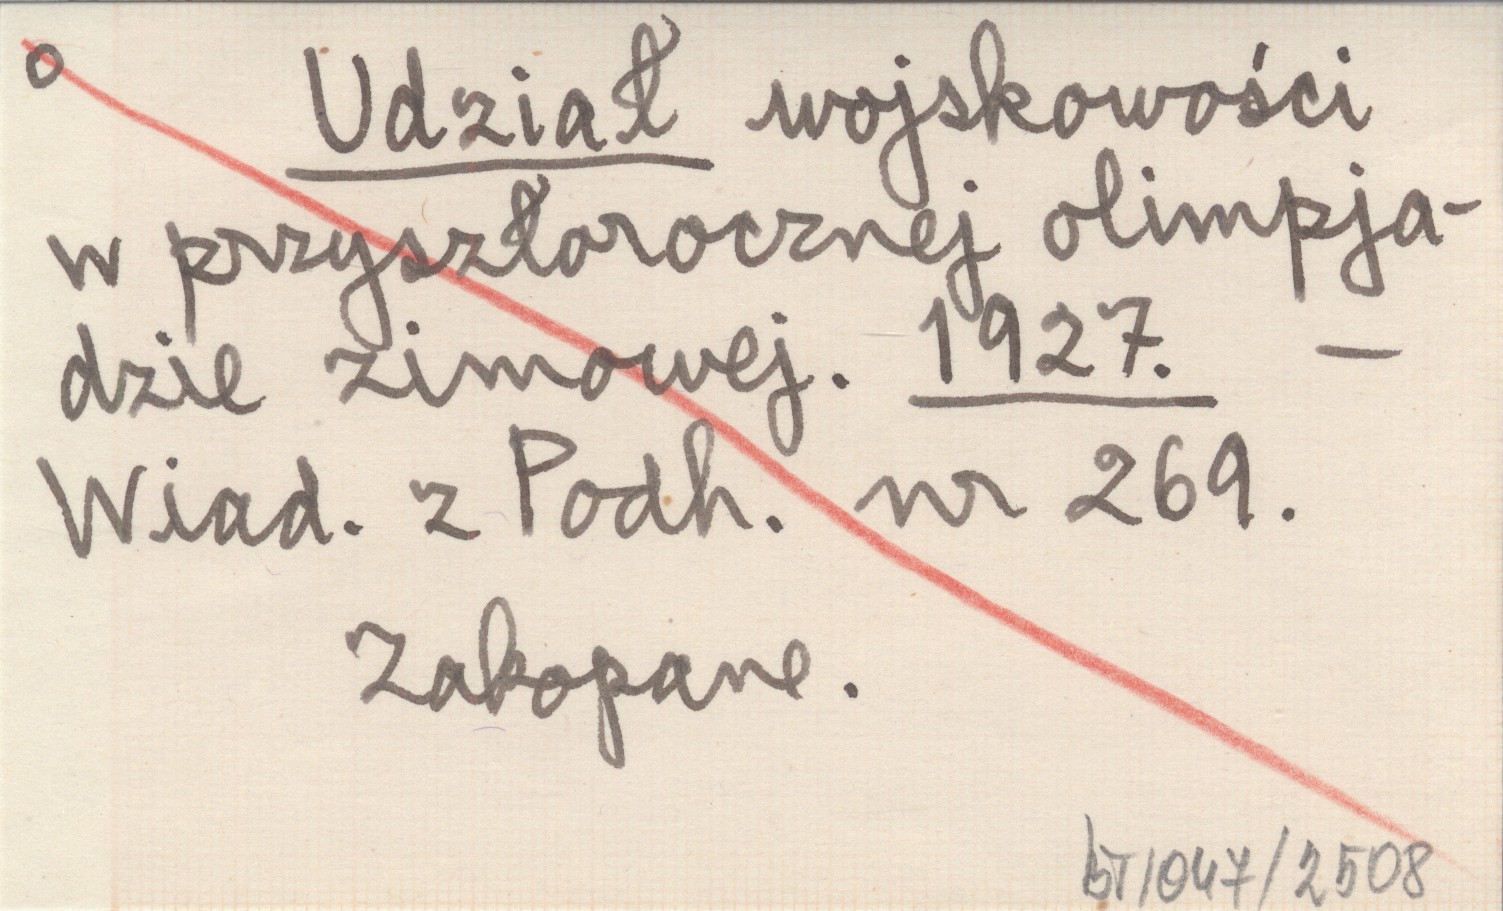 o Udział wojskowości
w przyszłorocznej olimpja-
dzie zimowej. 1927. —
Wiad. z Podh. nr 269.
Zakopane.
bT/047/2508